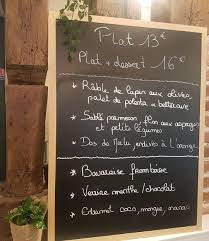 Plat 13€
Plat + dessert 16€
* Râble de lapin aux olives,
palet de polenta & betterave
* Sablé parmesan, flan aux asperges
et petits légumes
* Dos de Merlu, endives à l'orange
* Bavaroise framboise
* Verrine menthe / chocolat
* Entremet coco, mangue, ananas